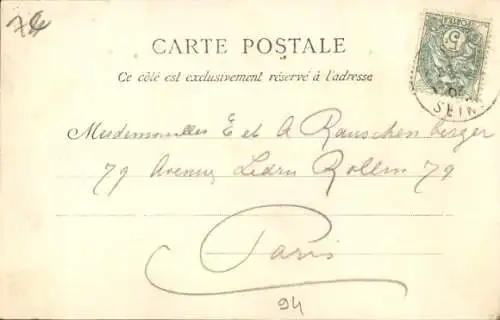 74
CARTE POSTALE
Ce côté est exclusivement réservé à l'adresse
5
SEINE
Mesdemoiselles E et A Rauschenberger
79 Avenue Ledru Rollin 79
Paris
94